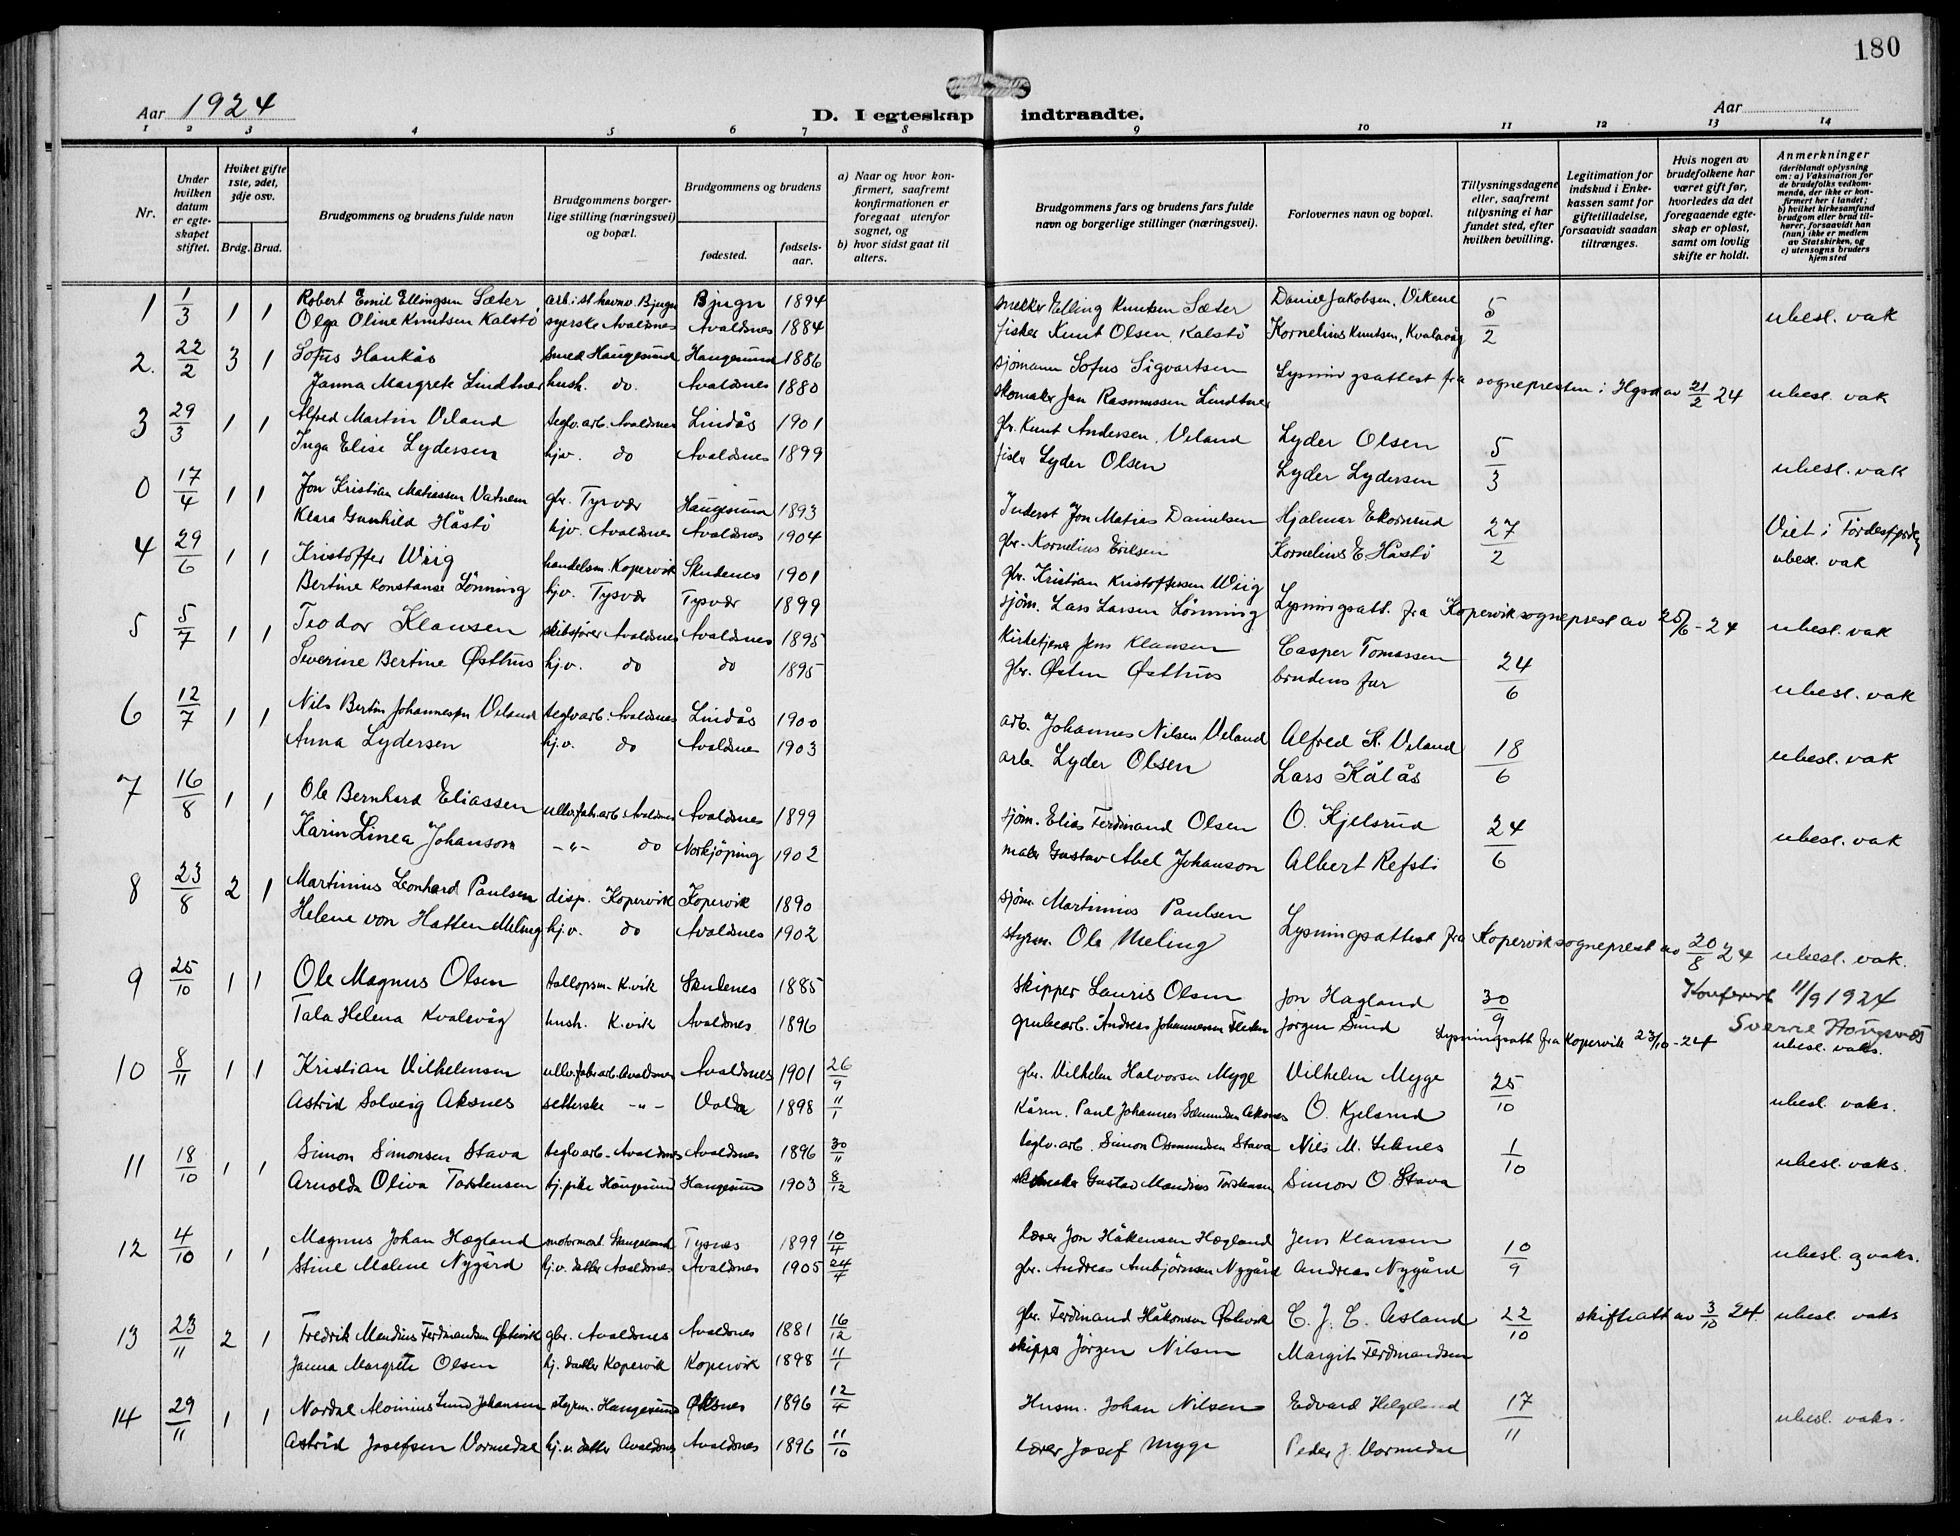 180
Aar 1924
D. I egteskap indtraadte.
Aar
1 2 3 4 5 6 7 8 9 10 11 12 13 14
Nr.
Under hvilken datum er egteskapet stiftet.
Hviket gifte 1ste, 2det, 3dje osv.
Brdg. Brud.
Brudgommens og brudens fulde navn
Brudgommens borgerlige stilling (næringsvei) og bopæl.
Brudgommens og brudens
fødested.
fødselsaar.
a) Naar og hvor konfirmert, saafremt konfirmationen er foregaat utenfor sognet, og
b) hvor sidst gaat til alters.
Brudgommens fars og brudens fars fulde navn og borgerlige stillinger (næringsvei).
Forlovernes navn og bopæl.
Tillysningsdagene eller, saafremt tillysning ei har fundet sted, efter hvilken bevilling.
Legitimation for indskud i Enkekassen samt for giftetilladelse, forsaavidt saadan tiltrænges.
Hvis nogen av brudefolkene har været gift før, hvorledes da det foregaaende egteskap er opløst, samt om lovlig skifte er holdt.
Anmerkninger
(deriblandt oplysning om: a) Vaksination for de brudefolks vedkommende, der ikke er konfirmert her i landet;
b) hvilket kirkesamfund brudgom eller brud tilhører, forsaavidt han (hun) ikke er medlem av Statskirken, og
c) utensogns bruders hjemsted
1 1/3 1 1 Robert Emil Ellingsen Sæter arb. i st. havnv. Bjugn Bjugn 1894 snekker Elling Knutsen Sæter Daniel Jakobsen, Vikene 5/2 ubesl. vak
Olga Oline Knutsen Kalstø syerske Avaldsnes Avaldsnes 1884 fisker Knut Olsen, Kalstø Kornelius Knutsen, Kvalavåg
2. 22/2 3 1 Sofus Haukås smed Haugesund Haugesund 1886 sjømann Sofus Sigvartsen Lysningsattest fra sognepresten i Hgsd av 21/2 24 ubesl. vak
Janna Margrete Lindtner hush. do. Avaldsnes 1880 skomaker Jan Rasmussen Lindtner
3 29/3 1 1 Alfred Martin Veland teglv.arb. Avaldsnes Lindås 1901 gbr. Knut Andersen Veland Lyder Olsen 5/3 ubesl. vak
Inga Elise Lydersen hjv. do Avaldsnes 1899 fisker Lyder Olsen Lyder Lydersen
0 17/4 1 1 Jon Kristian Matiassen Vatnem gbr. Tysvær Haugesund 1893 Inderst Jon Matias Danielsen Hjalmar Ekornrud 27/2 Viet i Førdesfjorden
Klara Gunhild Håstø hjv. Avaldsnes Avaldsnes 1904 gbr. Kornelius Eriksen Kornelius E. Håstø ubesl. vak
4 29/6 1 1 Kristoffer Wiig handelsm. Kopervik Skudenes 1901 gbr. Kristian Kristoffersen Wiig Lysningsatt. fra Kopervik sogneprest av 25/6-24 ubesl. vak
Bertine Konstanse Lønning hjv. Tysvær Tysvær 1899 sjøm. Lars Larsen Lønning
5 5/7 1 1 Teodor Klausen skibsfører Avaldsnes Avaldsnes 1895 Kirketjener Jens Klausen Casper Tomassen 24/6 ubesl. vak
Severine Bertine Østhus hj.v. do do 1895 gbr. Østen Østhus brudens far
6 12/7 1 1 Nils Bertin Johannessen Veland teglv.arb. Avaldsnes Lindås 1900 arb. Johannes Nilsen Veland Alfred K. Veland 18/6 ubesl. vak
Anna Lydersen hj.v. do Avaldsnes 1903 arb. Lyder Olsen Lars Kålås
7 16/8 1 1 Ole Bernhard Eliassen ullv.fabr.arb Avaldsnes Avaldsnes 1899 sjøm. Elias Ferdinand Olsen O. Kjelsrud 24/6 ubesl. vak
Karin Linea Johanson -"- do Norkjøping 1902 maler Gustav Abel Johanson Albert Refsti
8 23/8 2 1 Martinius Leonhard Paulsen disp. Kopervik Kopervik 1890 sjøm. Martinius Paulsen Lysningsattest fra Kopervik sogneprest av 20/8 24 ubesl. vak.
Helene von Hatten Meling hj.v. do Avaldsnes 1902 styrm. Ole Meling
9 25/10 1 1 Ole Magnus Olsen K.vik Skudenes 1885 skipper Lauris Olsen Jon Hagland 30/9 Konferert 11/9 1924
Tala Helena Kvalavåg hush. K.vik Avaldsnes 1896 grubearb. Andreas Johannessen Jørgen Sund Lysningsatt fra Kopervik 23/10-24 Sverre
ubesl. vaks.
10 8/11 1 1 Kristian Vilhelmsen ullv.fabr.arb. Avaldsnes Avaldsnes 1901 26/9 gbr. Vilhelm Halvorsen Myge Vilhelm Myge 25/10 ubesl. vaks.
Astrid Solveig Aksnes setterske -"- Volda 1898 11/1 Paul Johannes Aksnes O. Kjelsrud
11 18/10 1 1 Simon Simonsen Stava teglv.arb. Avaldsnes Avaldsnes 1896 30/11 teglv.arb. Simon Osmundsen Stava Nils M. 1/10 ubesl. vaks.
Arnolda Oliva Torstensen hj. pike Haugesund Haugesund 1903 8/12 skomaker Gustav Mandius Torstensen Simon O. Stava
12 4/10 1 1 Magnus Johan Hægland motormont. Tysnes 1899 10/4 lærer Jon Håkensen Hægland Jens Klausen 10/9 ubesl. og vaks.
Stine Malene Nygård hj.v. datter Avaldsnes Avaldsnes 1905 24/4 gbr. Andreas Ambjørnsen Nygård Andreas Nygård
13 23/11 2 1 Fredrik Mendius Ferdinandsen Østevik gbr. Avaldsnes Avaldsnes 1881 16/12 gbr. Ferdinand Håkonsen Østevik C. J. C. Asland 22/10 skifteatt av 3/10 24. ubesl. vaks
Janna Margrete Olsen hj. datter Kopervik Kopervik 1898 11/1 skipper Jørgen Nilsen Margit Ferdinandsen
14 29/11 1 1 Nordal Lund Johansen styrm. Haugesund Øksnes 1896 12/4 Husm. Johan Nilsen Edvard Helgeland 17/11 ubesl. vaks.
Astrid Josefsen Vormedal hj.v. datter Avaldsnes Avaldsnes 1896 11/10 lærer Josef Myge Peder J. Vormedal